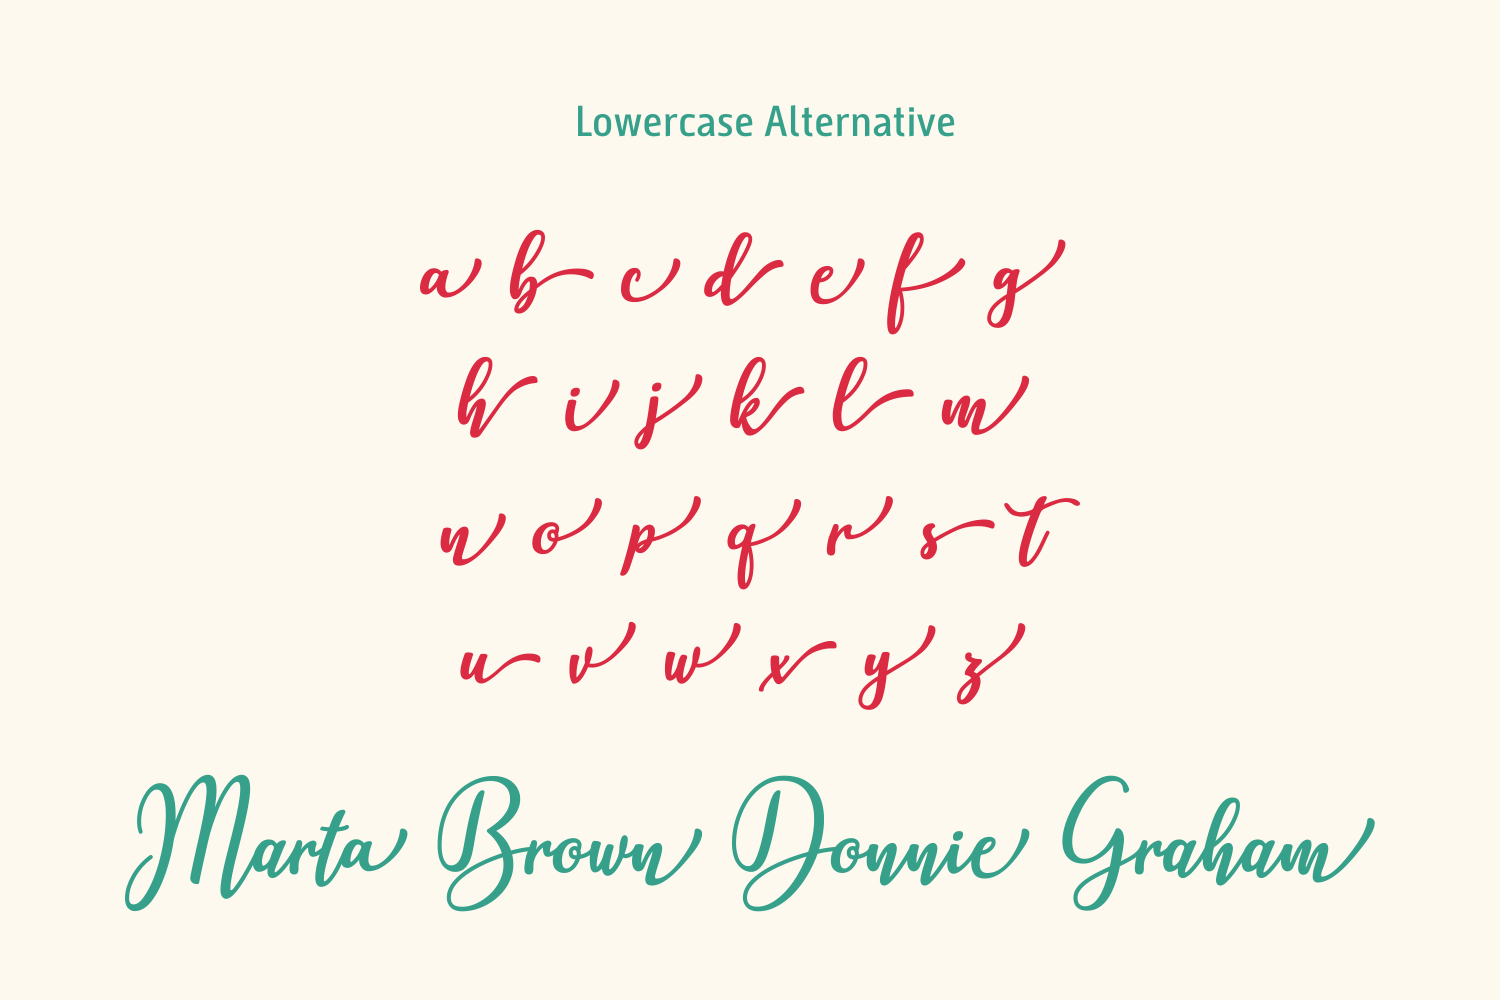 Lowercase Alternative
a b c d e f g
h i j k l m
n o p q r s t
u v w x y z
Marta Brown Donnie Graham